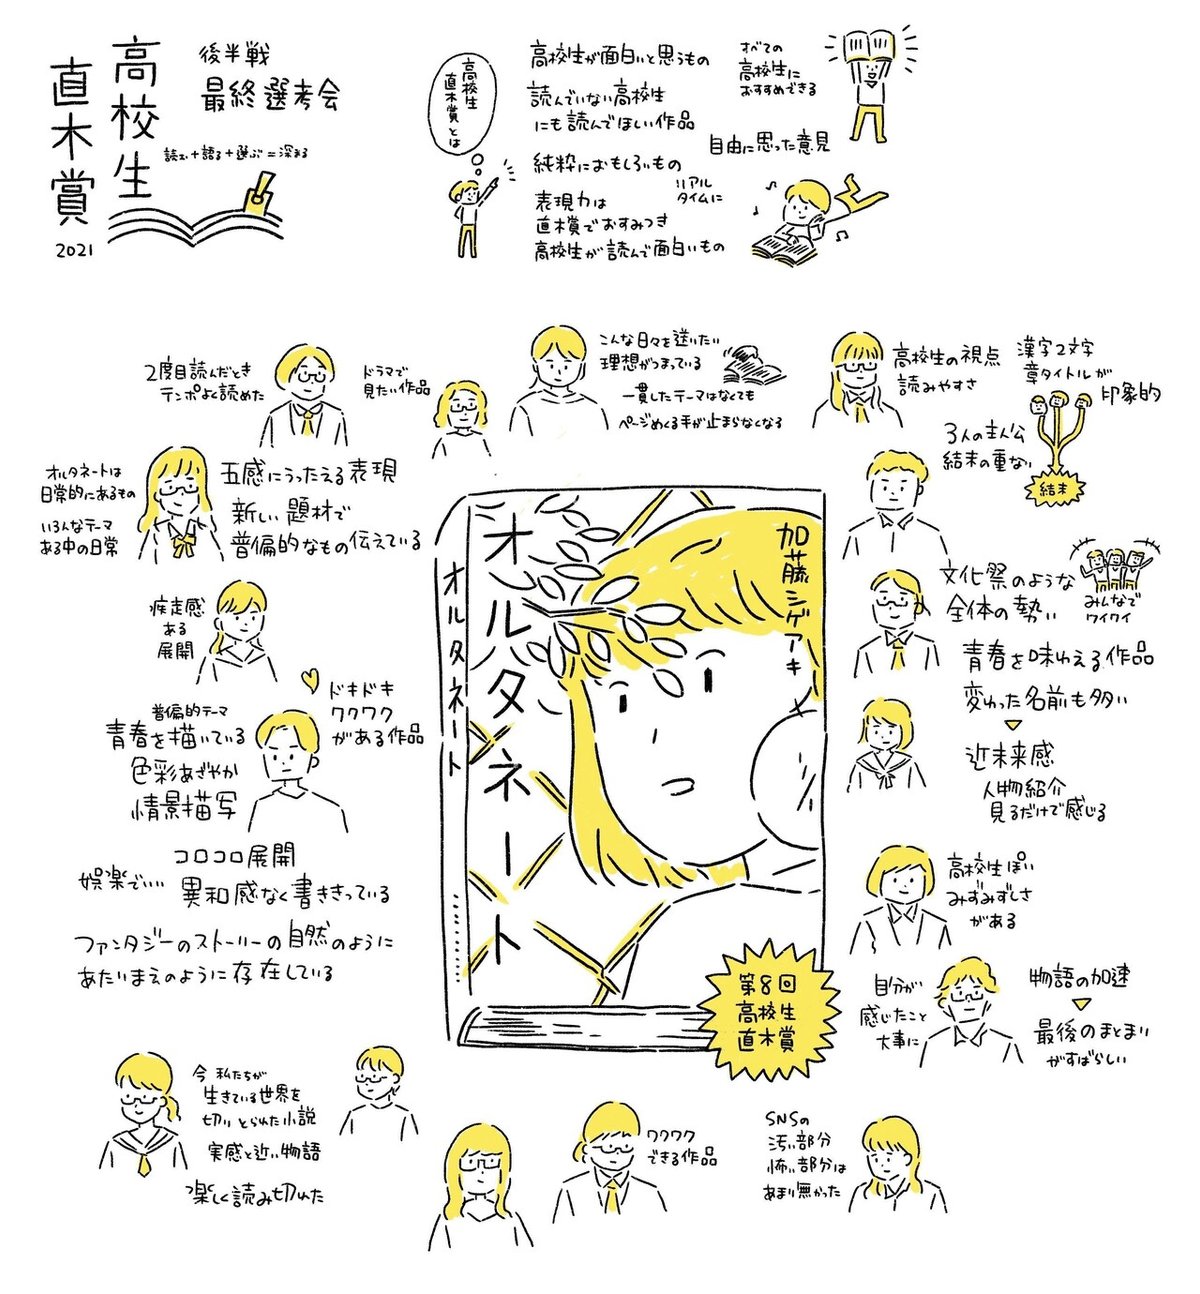 高校生
直木賞
2021
後半戦
最終選考会
読む+語る+選ぶ=深まる
高校生
直木賞とは
高校生が面白いと思うもの
読んでいない高校生
にも読んでほしい作品
純粋におもしろいもの
表現力は
直木賞でおすみつき
高校生が読んで面白いもの
すべての
高校生に
おすすめできる
自由に思った意見
リアル
タイムに
2度目読んだとき
テンポよく読めた
ドラマで
見たい作品
こんな日々を送りたい
理想がつまっている
一貫したテーマはなくても
ページめくる手が止まらなくなる
高校生の視点
読みやすさ
漢字2文字
章タイトルが
印象的
3人の主人公
結末の重ない
結末
オルタネートは
日常的にあるもの
いろんなテーマ
ある中の日常
五感にうったえる表現
新しい題材で
普偏的なもの伝えている
疾走感
ある
展開
ドキドキ
ワクワク
がある作品
普偏的テーマ
青春を描いている
色彩あざやか
情景描写
コロコロ展開
娯楽でいい
異和感なく書ききっている
ファンタジーのストーリーの自然のように
あたりまえのように存在している
オルタネート
オルタネート
加藤シゲアキ
第8回
高校生
直木賞
文化祭のような
全体の勢い
みんなで
ワイワイ
青春を味わえる作品
変わった名前も多い
近未来感
人物紹介
見るだけで感じる
高校生ぽい
みずみずしさ
がある
自分が
感じたこと
大事に
物語の加速
最後のまとまり
がすばらしい
今 私たちが
生きている世界を
切りとられた小説
実感と近い物語
楽しく読み切れた
ワクワク
できる作品
SNSの
汚い部分
怖い部分は
あまり無かった